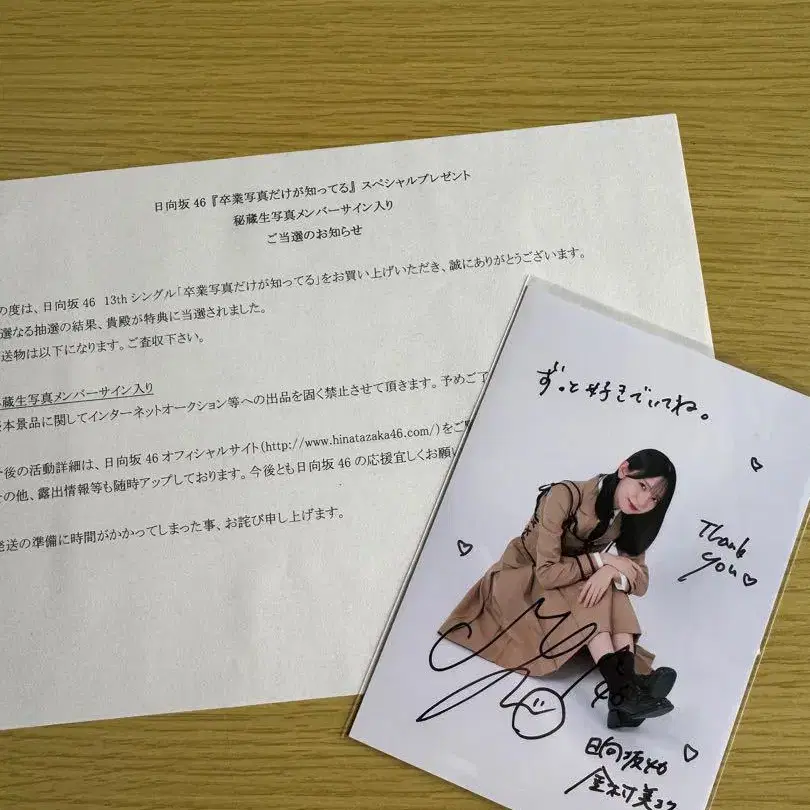 日向坂46『卒業写真だけが知ってる』スペシャルプレゼント
秘蔵生写真メンバーサイン入り
ご当選のお知らせ
の度は、日向坂46 13thシングル「卒業写真だけが知ってる」をお買い上げいただき、誠にありがとうございます。
選なる抽選の結果、貴殿が特典に当選されました。
送物は以下になります。ご査収下さい。
蔵生写真メンバーサイン入り
本景品に関してインターネットオークション等への出品を固く禁止させて頂きます。予めご了
後の活動詳細は、日向坂46オフィシャルサイト(http://www.hinatazaka46.com/)をご
の他、露出情報等も随時アップしております。今後とも日向坂46の応援宜しくお願い
送の準備に時間がかかってしまった事、お詫び申し上げます。
ずっと好きでいてね。
Thank
you
日向坂46
金村美玖